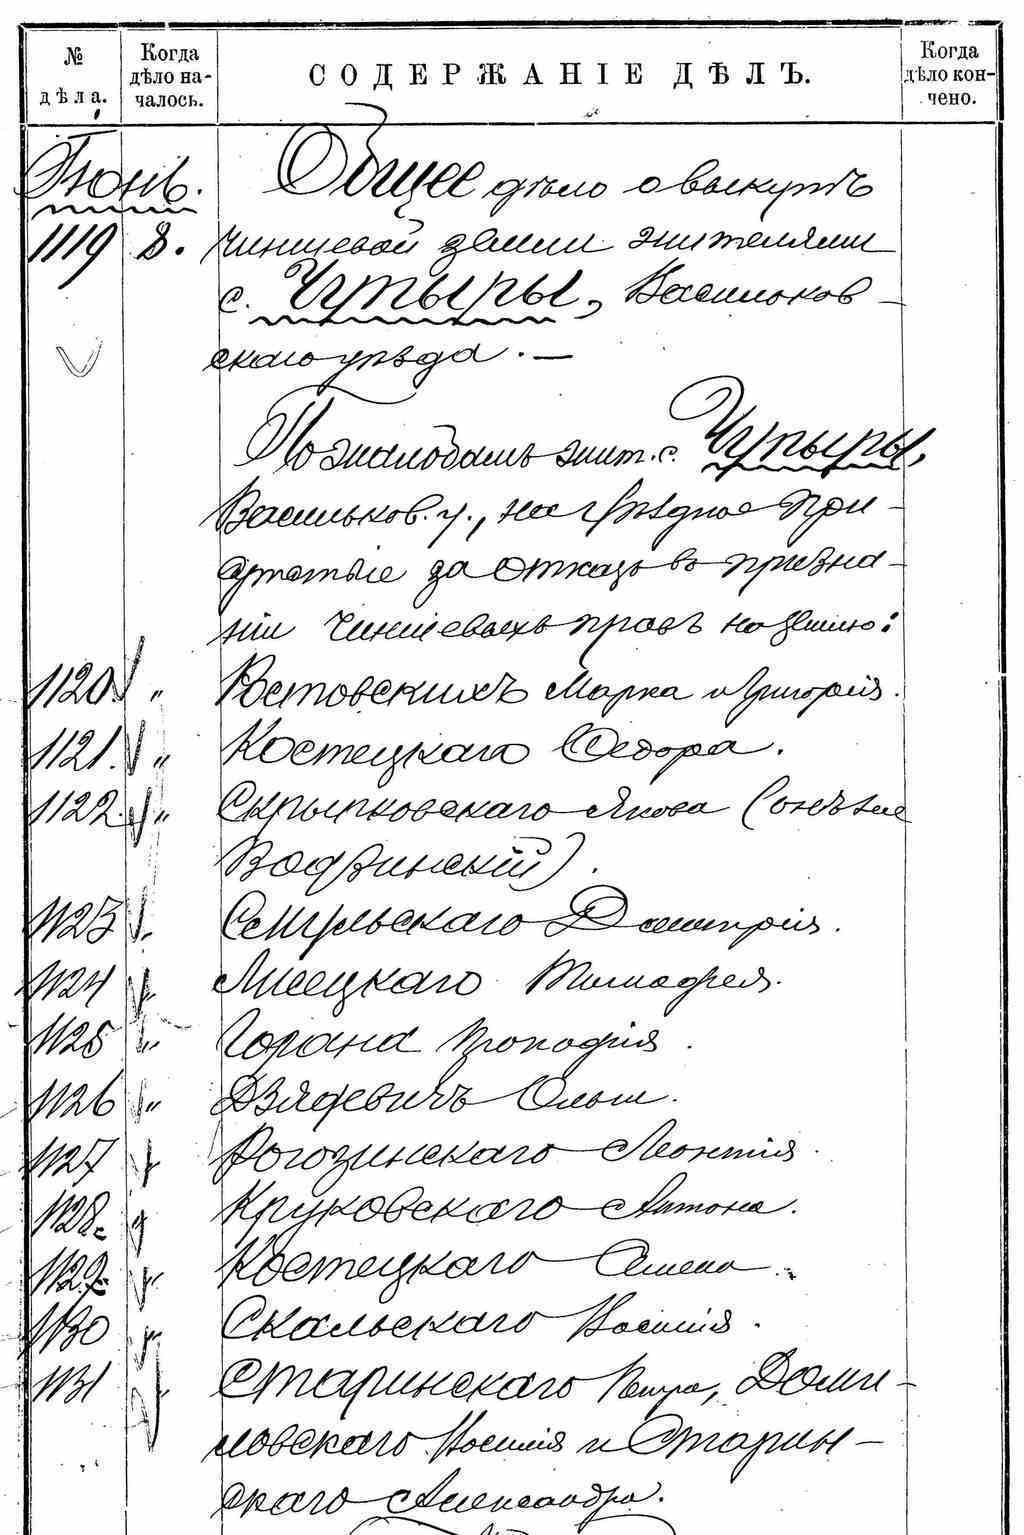 № дѣла.
Когда дѣло началось.
СОДЕРЖАНІЕ ДѢЛЪ.
Когда дѣло кончено.
Іюнь.
Общее дѣло о выкупѣ
1119 8. чиншевой земли жителями
с. Чупыры, Васильков-
скаго уѣзда. —
По жалобамъ жит. с. Чупыры,
Васильков. у., на Уѣздное При-
сутствіе за отказъ въ призна-
ніи чиншевыхъ правъ на землю:
1120. " Ростовскихъ Марка и Григорія.
1121. " Костецкаго Ѳедора.
1122. " Скрыпковскаго Якова (онъ же
Водзинскій).
1123 " Сенгульскаго Дмитрія.
1124 " Лисецкаго Тимофея.
1125 " Горана Прокофія.
1126 " Дзядевичъ Ольги.
1127 " Рогозинскаго Леонтія.
1128. " Круковскаго Антона.
1129. " Костецкаго Семена.
1130 " Скальскаго Василія.
1131 " Старинскаго Петра, Доми-
ловскаго Василія и Старин-
скаго Александра.